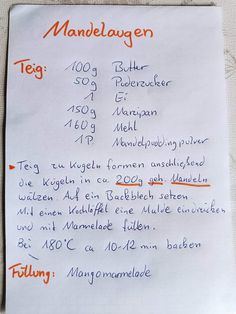 Mandelaugen
Teig: 100g Butter
50g Puderzucker
1 Ei
150g Marzipan
160g Mehl
1 P. Mandelpuddingpulver
Teig zu Kugeln formen anschließend
die Kugeln in ca. 200g geh. Mandeln
wälzen. Auf ein Backblech setzen
Mit einen Kochlöffel eine Mulde eindrücken
und mit Marmelade füllen.
Bei 180°C ca 10-12 min backen
Füllung: Mangomarmelade